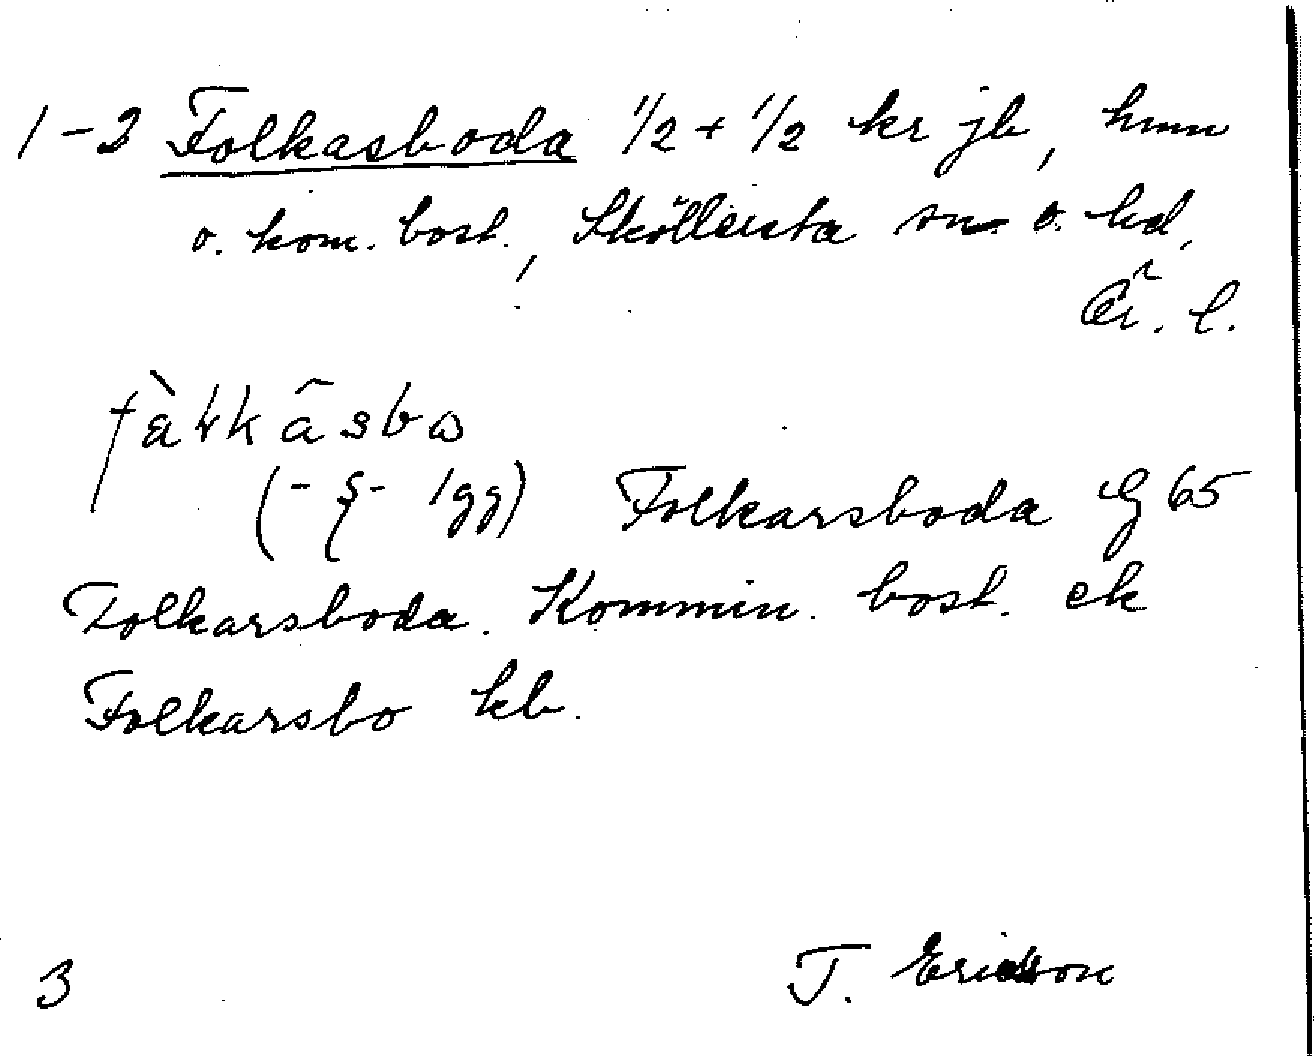 1-2 Folkasboda 1/2 + 1/2 kr jb, hmn
o. kom. bost., Sköllersta sn o. hd,
Ör. l.
fàłkāsbω
(- ʂ - lgg) Folkarsboda G 65
Folkarsboda. Kommin. bost. ek
Folkarsbo kb.
3 T. Ericsson